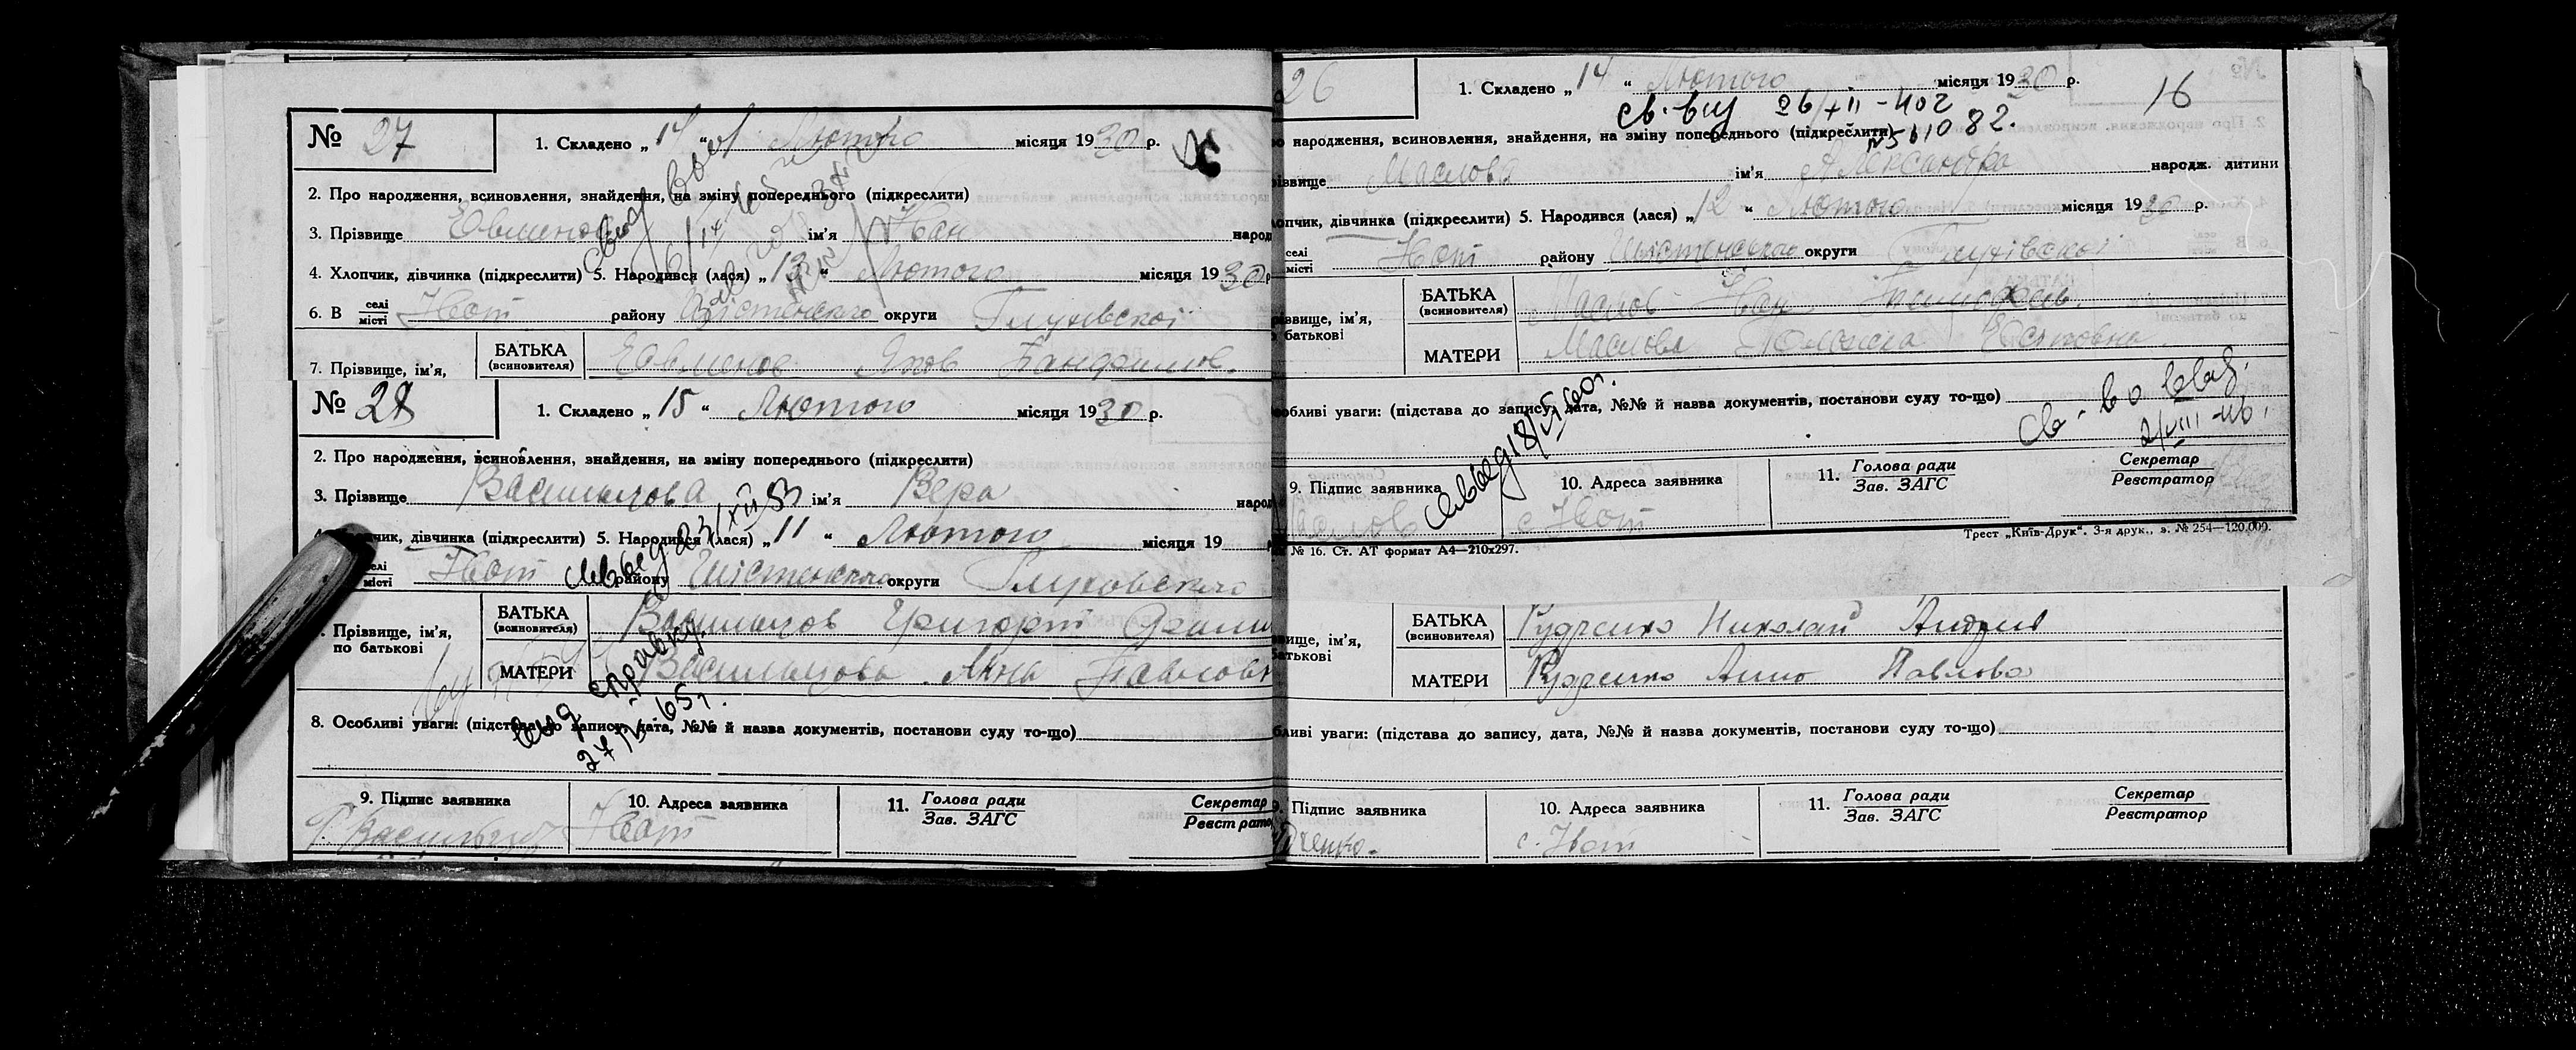 № 27
1. Складено „ 14 “ Лютого місяця 1930 р.
2. Про народження, всиновлення, знайдення, на зміну попереднього (підкреслити)
3. Прізвище Евменов ім'я Иван народ
4. Хлопчик, дівчинка (підкреслити) 5. Народився (лася) „ 13 “ Лютого місяця 1930 р
6. В селі місті Ивот району округи Глухівської
7. Прізвище, ім'я, БАТЬКА (всиновителя) Евменов Яков
№ 28
1. Складено „ 15 “ Лютого місяця 1930 р.
2. Про народження, всиновлення, знайдення, на зміну попереднього (підкреслити)
3. Прізвище Васильцова ім'я Вера народ
чик, дівчинка (підкреслити) 5. Народився (лася) „ 11 “ Лютого місяця 19
селі місті Ивот району округи Глуховского
Прізвище, ім'я, по батькові
БАТЬКА (всиновителя) Васильцов Григорий
МАТЕРИ Васильцова Анна Павловн
выд справку
8. Особливі уваги: (підстава до запису, дата, №№ й назва документів, постанови суду то-що)
9. Підпис заявника 10. Адреса заявника 11. Голова ради Зав. ЗАГС Секретар Реєстратор
Г. Васильцов Ивот
26
1. Складено „ 14 “ Лютого місяця 1930 р.
16
народження, всиновлення, знайдення, на зміну попереднього (підкреслити)
різвище Маслова ім'я Александра народж. дитини
лопчик, дівчинка (підкреслити) 5. Народився (лася) „ 12 “ Лютого місяця 1930 р.
селі місті Ивот району округи Глухівської
різвище, ім'я, батькові
БАТЬКА (всиновителя) Маслов Иван
МАТЕРИ Маслова
обливі уваги: (підстава до запису, дата, №№ й назва документів, постанови суду то-що)
9. Підпис заявника 10. Адреса заявника 11. Голова ради Зав. ЗАГС Секретар Реєстратор
Маслов с. Ивот
Трест „Київ-Друк“. 3-я друк., з. № 254—120.000.
№ 16. Ст. АТ формат А4—210х297.
вище, ім'я, батькові
БАТЬКА (всиновителя) Рудченко Николай Андрие
МАТЕРИ Рудченко Анна Павлова
ливі уваги: (підстава до запису, дата, №№ й назва документів, постанови суду то-що)
9. Підпис заявника 10. Адреса заявника 11. Голова ради Зав. ЗАГС Секретар Реєстратор
дченко. с. Ивот